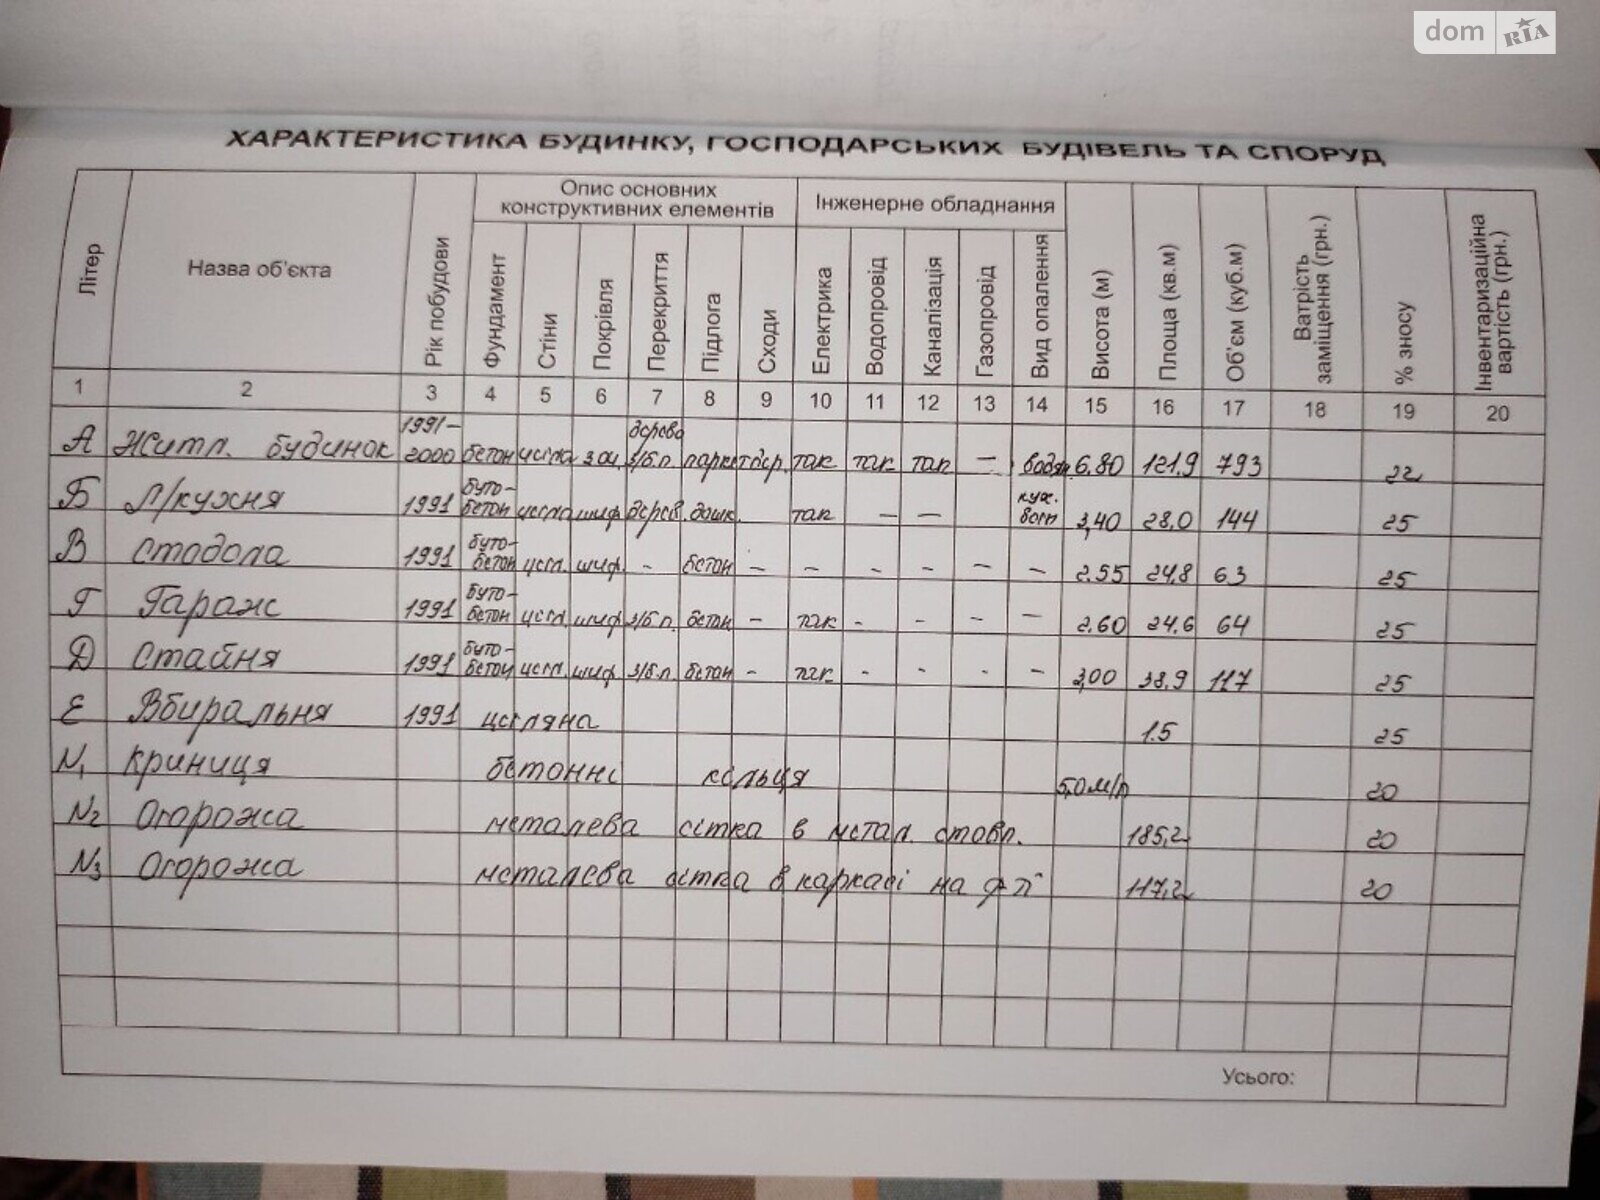 dom RIA
ХАРАКТЕРИСТИКА БУДИНКУ, ГОСПОДАРСЬКИХ БУДІВЕЛЬ ТА СПОРУД
Літер Назва об'єкта Рік побудови Опис основних конструктивних елементів Інженерне обладнання Висота (м) Площа (кв.м) Об'єм (куб.м) Ватрість заміщення (грн.) % зносу Інвентаризаційна вартість (грн.)
Фундамент Стіни Покрівля Перекриття Підлога Сходи Електрика Водопровід Каналізація Газопровід Вид опалення
1 2 3 4 5 6 7 8 9 10 11 12 13 14 15 16 17 18 19 20
А Житл. будинок 1991-2000 бетон цегла дерево з/б.п. паркет дер. так так так — 6.80 121.9 793 22
Б Л/кухня 1991 буто-бетон цегла шиф. дерев. дошк. так — — 3,40 28,0 144 25
В Стодола 1991 буто-бетон цегл. шиф. - бетон - - - - — - 2.55 24,8 63 25
Г Гараж 1991 буто-бетон цегл. шиф з/б.п. бетон - так - - - — 2.60 24.6 64 25
Д Стайня 1991 буто-бетон цегл. шиф з/б.п. бетон - так - - - - 3,00 38,9 117 25
Е Вбиральня 1991 цегляна 1.5 25
N1 Криниця бетонні кільця 5,0 м/п 20
N2 Огорожа металева сітка в метал. стовп. 185,2 20
N3 Огорожа металева сітка в каркасі на 117,2 20
Усього: